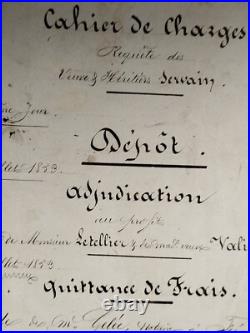 Cahier de Charges
Requête des
Veuve & Héritiers Servain
Jour
Dépôt.
1853
Adjudication
au profit
de Monsieur Letellier & de mad. veuve Vali
1853
Quittance de Frais.
de Me